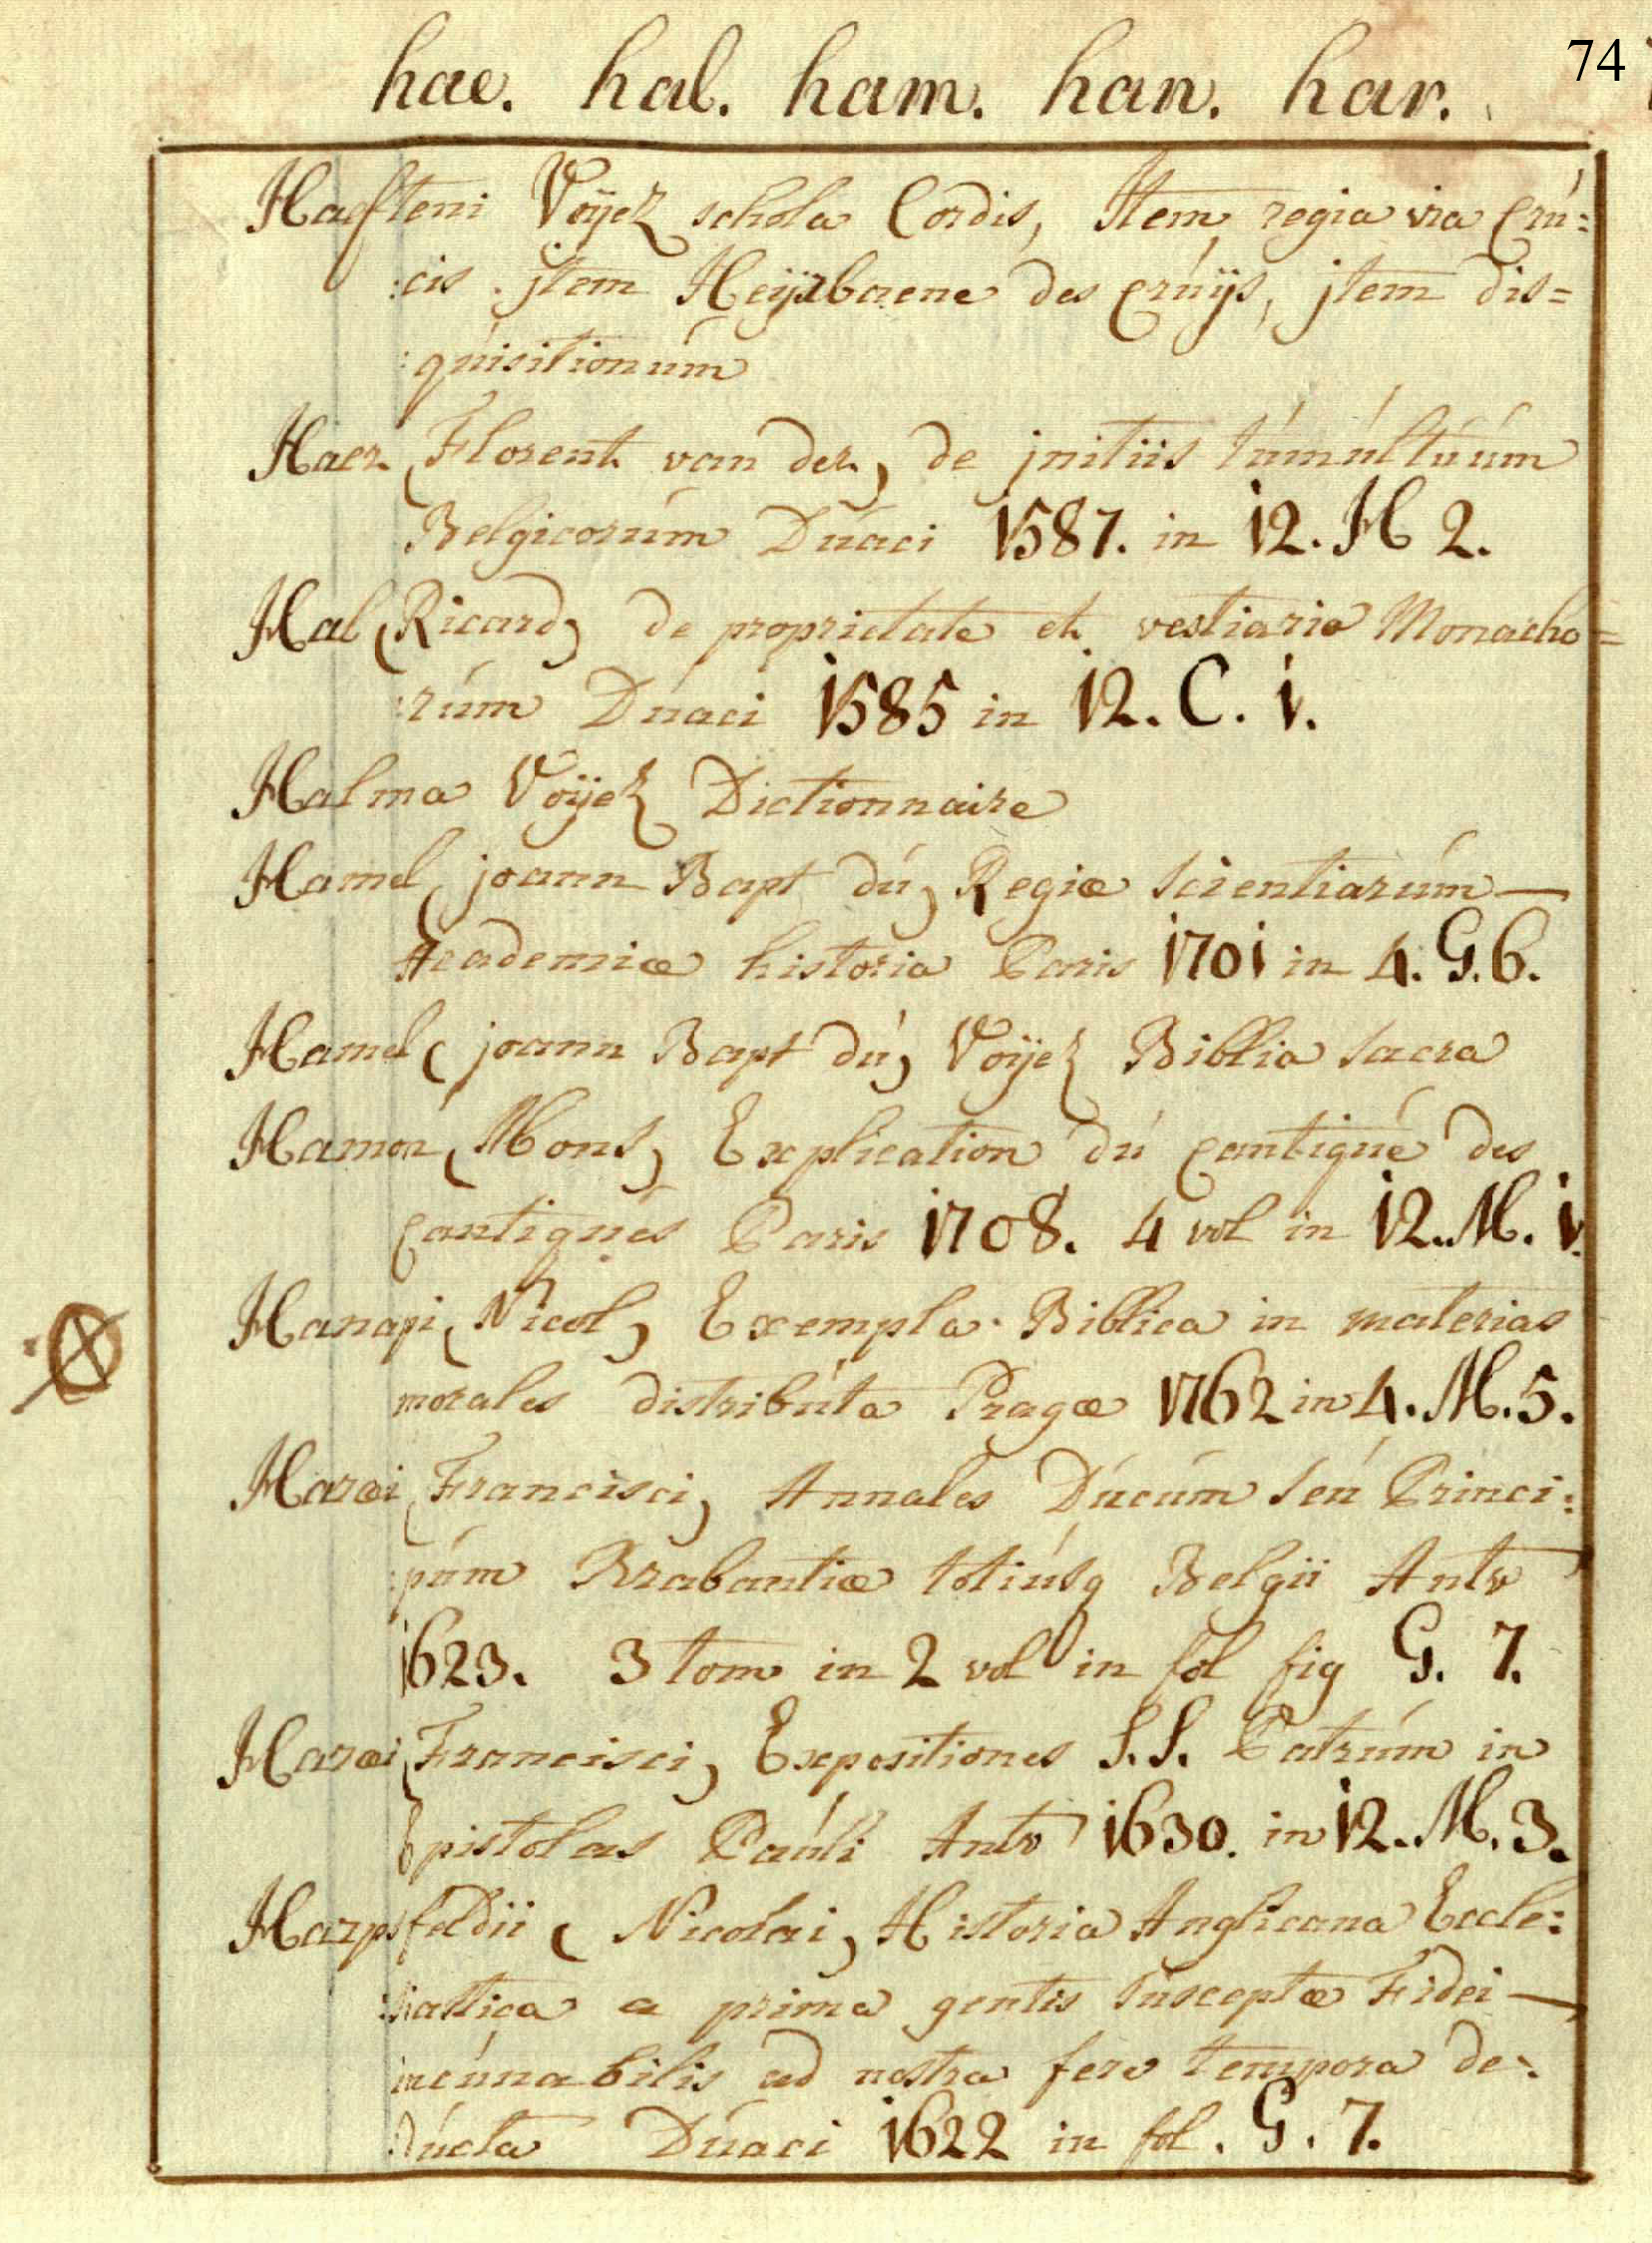 74
hae. hal. ham. han. har.
Haefteni Voÿez schola Cordis, Item regia via Crú:
:cis. jtem Heÿrbaene des Crúÿs, jtem dis=
:qúisitionúm
Haer (Florent van der) de jnitiis túmúltúúm
Belgicorúm Dúaci 1587. in 12. H 2.
Hal (Ricard) de proprietate et vestiario Monacho=
:rúm Dúaci 1585 in 12. C. 1.
Halma Voÿez Dictionnaire
Hamel (joann Bapt dú) Regiæ Scientiarúm —
Academiæ historia Paris 1701 in 4. G. 6.
Hamel (joann Bapt dú) Voÿez Biblia Sacra
Hamon (Mons) Explication dú Cantiqúe des
Cantiqúes Paris 1708. 4 vol in 12. M. 1.
Hanapi (Nicol) Exempla Biblica in materias
morales distribúta Pragæ 1762 in 4. M. 5.
Haræi (Francisci) Annales Dúcúm Seú Princi:
:púm Brabantiæ totiúsq Belgii Antv
1623. 3 tom in 2 vol in fol fig G. 7.
Haræi (Francisci) Expositiones S.S. Patrúm in
Epistolas Paúli Antv 1630. in 12. M. 3.
Harpsfeldii (Nicolai) Historia Anglicana Eccle:
:siastica a prima gentis Súsceptæ Fidei —
incúnabilis ad nostra fere tempora de:
:dúcta Dúaci 1622 in fol. G. 7.